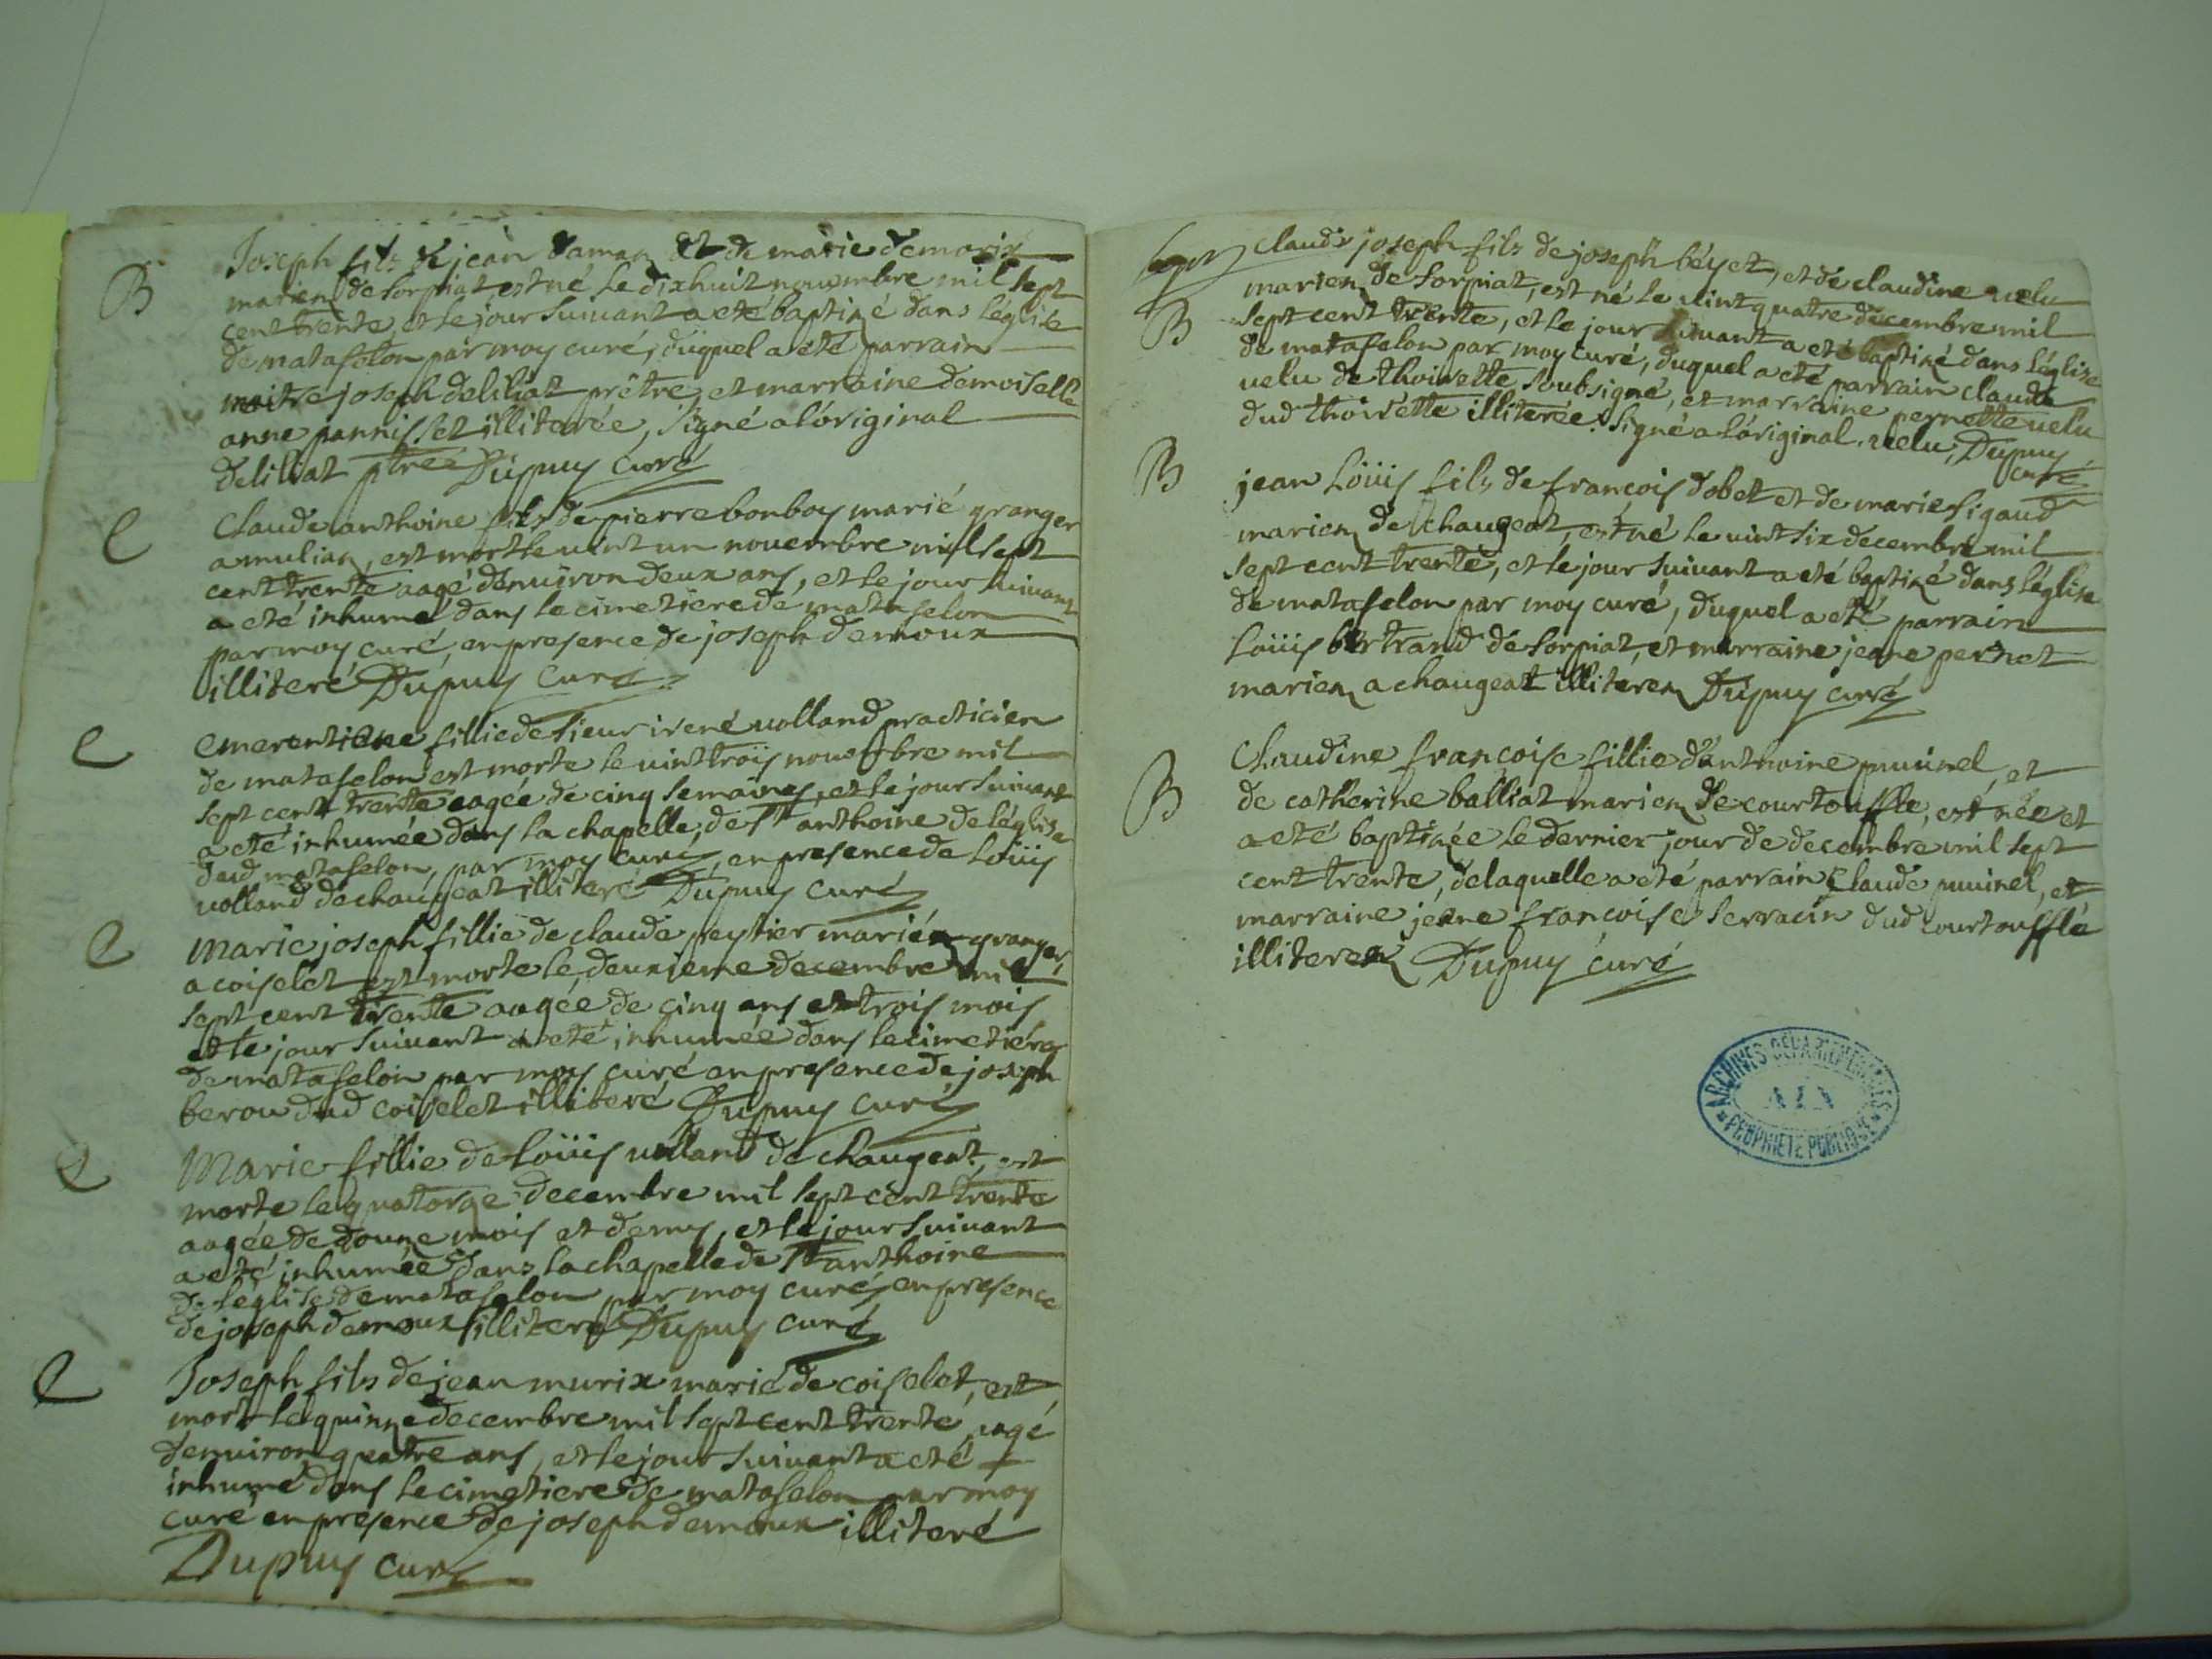 B
Joseph fils de jean daman et de marie demorix
mariez de sorpiat est né le dixhuit nouembre mil sept
cent trente, et le jour suiuant a eté baptizé dans léglise
de matafelon par moy curé, duquel a eté parrain
maitre joseph deliliat prêtre, et marraine demoiselle
anne pannisset illiterée, signé a lóriginal
deliliat ptre Dupuy curé
C
Claude anthoine fils de pierre bonboy marié granger
a mulian, est mort le uint un nouembre mil sept
cent trente aagé denuiron deux ans, et le jour suiuant
a eté inhumé dans le cimetiere de matafelon
par moy curé, en presence de joseph demoux
illiteré Dupuy Curé
C
emerentiane fillie de sieur irené uolland practicien
de matafelon est morte le uint trois nouembre mil
sept cent trente aagée de cinq semaines, et le jour suiuant
a eté inhumée dans la chapelle, de st anthoine de léglise
dud matafelon, par moy curé, en presence de Loüis
uolland de chaugeat illiteré Dupuy curé
C
Marie joseph fillie de claude peytier mariéz grangers
a coiselet est morte le deuxieme decembre mil
sept cent trente aagée de cinq ans et trois mois
et le jour suiuant a eté inhumée dans le cimetiére
de matafelon par moy curé en presence de joseph
berou dud coiselet illiteré Dupuy curé
C
Marie fillie de Loüis uolland de chaugeat, est
morte le quatorze decembre mil sept cent trente
aagée de douze mois et demy, et le jour suiuant
a eté inhumée dans la chapelle de st anthoine
de léglise de matafelon par moy curé, en presence
de joseph demoux illiteré Dupuy curé
C
Joseph fils de jean murix marié de coiselet, est
mort le quinze decembre mil sept cent trente, aagé
denuiron quatre ans, et le jour suiuant a eté
inhumé dans le cimetiere de matafelon par moy
curé en presence de joseph demoux illiteré
Dupuy curé
claude joseph fils de joseph béyet, et de claudine uelu
B
mariez de sorpiat, est né le uint quatre decembre mil
sept cent trente, et le jour suiuant a eté baptizé dans léglise
de matafelon par moy curé, duquel a eté parrain claude
uelu de thoirette, soubsigné, et marraine pernette uelu
dud thoirette illiterée. signé a lóriginal. uelu, Dupuy
curé
B
jean Loüis fils de francois dobet et de marie sigaud
mariez de chaugeat, est né le uint six decembre mil
sept cent trente, et le jour suiuant a eté baptizé dans léglise
de matafelon par moy curé, duquel a eté parrain
Loüis bertrand de sorpiat, et marraine jeane pernet
mariez a chaugeat illiterez Dupuy curé
B
Claudine françoise fillie d'anthoine puuinel, et
de catherine balliat mariez de courtouffle, est née et
a eté baptizée le dernier jour de decembre mil sept
cent trente, de laquelle a eté parrain Claude puuinel, et
marraine jeane francoise serracin dud courtouffle
illiterez Dupuy curé
ARCHIVES DÉPARTEMENTALES
AIN
PROPRIÉTÉ PUBLIQUE